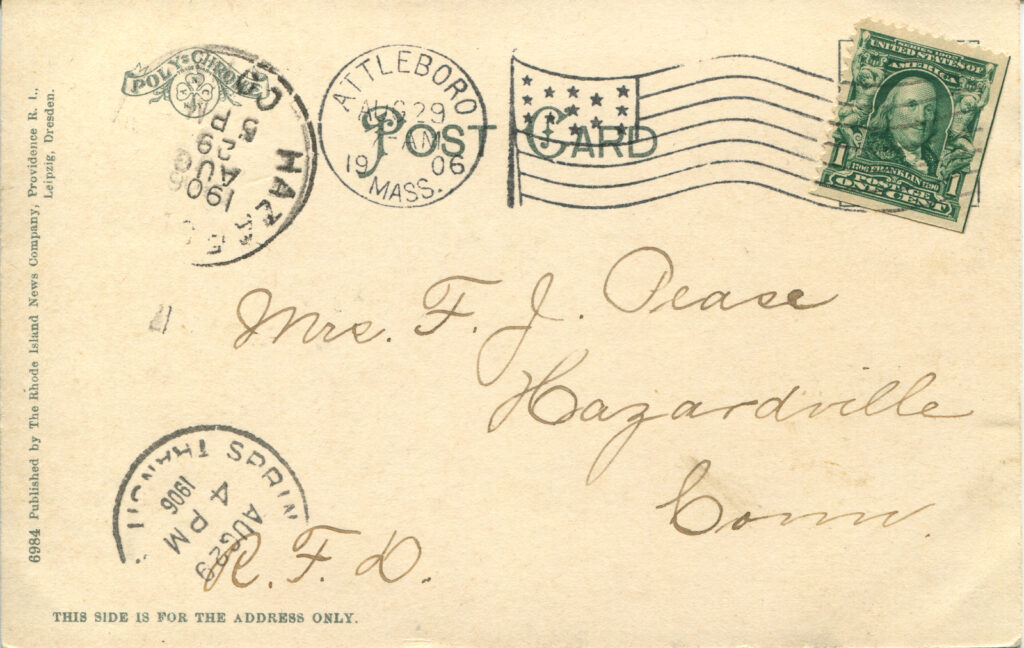 POLY-CHROME
HAZA
CO
5
P
AUG 29
1906
ATTLEBORO
AUG 29
AM
19 06
MASS.
POST CARD
SERIES 1902
UNITED STATES OF
AMERICA
1 1706 FRANKLIN 1790 1
POSTAGE
ONE CENT
Mrs. F. J. Pease
Hazardville
Conn.
R. F. D.
TRANSIT SPRIN
AUG 29
4 PM
1906
THIS SIDE IS FOR THE ADDRESS ONLY.
6984 Published by The Rhode Island News Company, Providence R. I.,
Leipzig, Dresden.